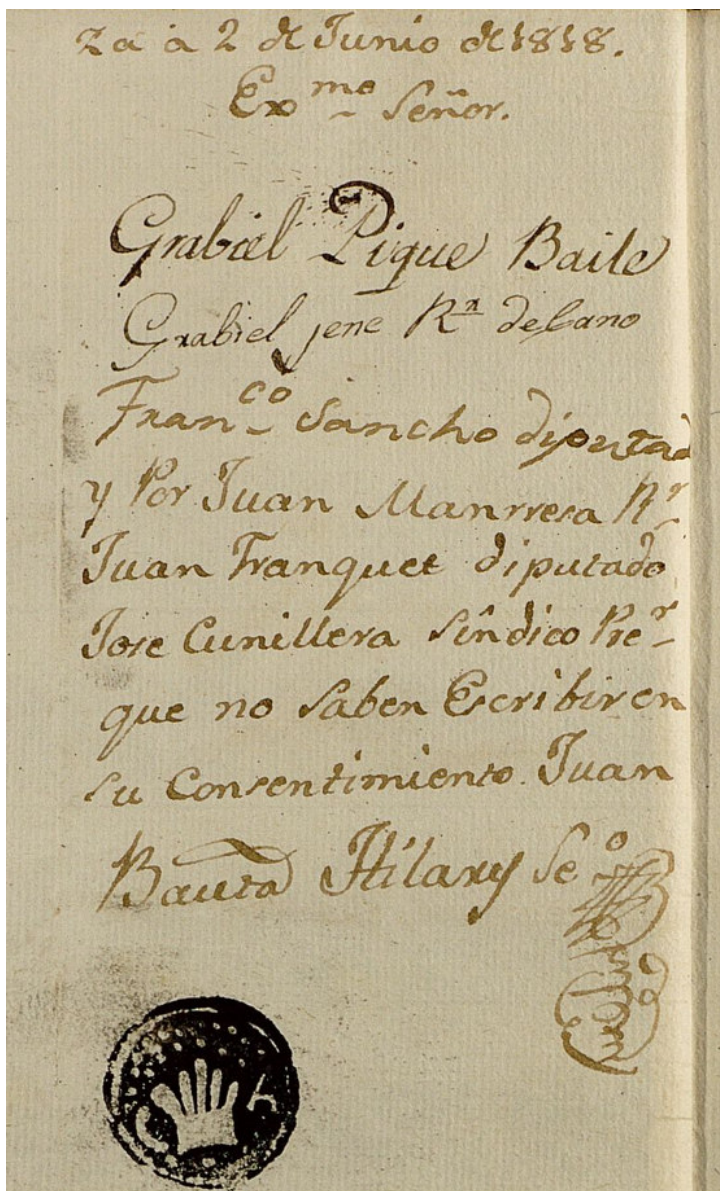 za à 2 de Junio de 1818.
Exmo Señor.
Grabiel Pique Baile
Grabiel jene Rn decano
Franco Sancho diputad
y Por Juan Manrresa Rr
Juan Franquet diputado
Jose Cunillera Sindico Prer
que no Saben Escribir en
su Consentimiento Juan
Bauta Hilary Seo
A